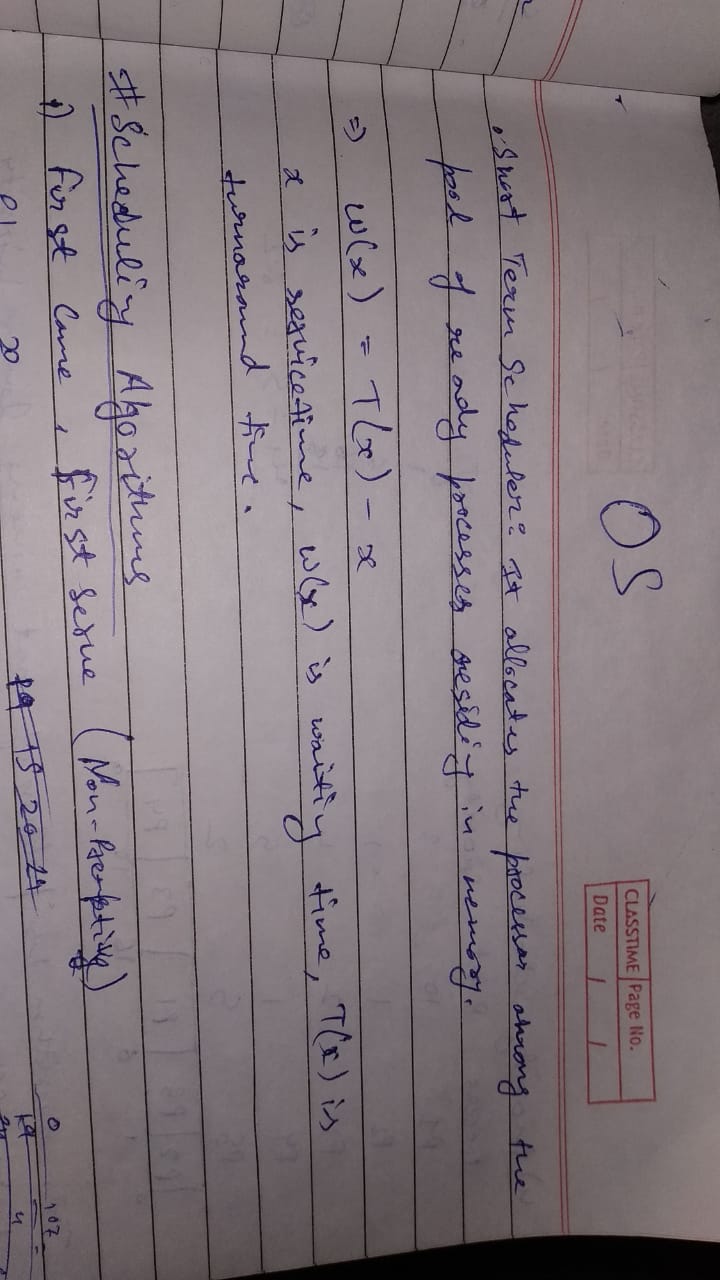 OS
CLASSTIME Page No.
Date / /
• Short Term Scheduler: It allocates the processor among the
pool of ready processes residing in memory.
⇒ W(x) = T(x) - x
x is servicetime, W(x) is waiting time, T(x) is
turnaround time.
# Scheduling Algorithms
1) First Come, First Serve (Non-Preemptive)